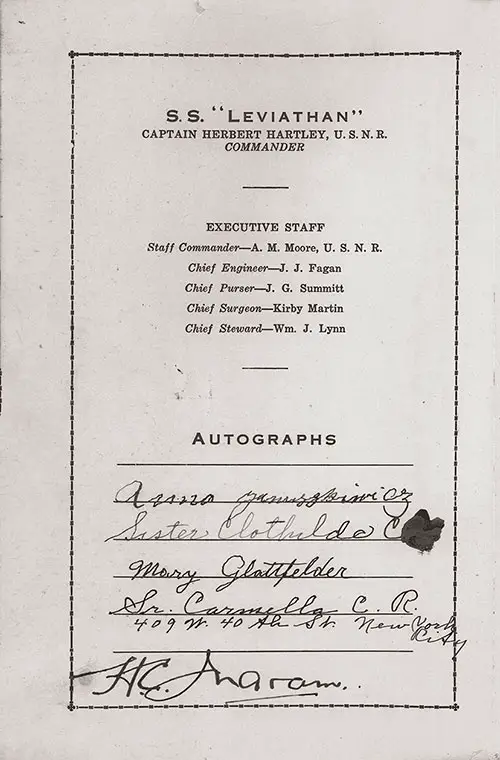 S. S. "LEVIATHAN"
CAPTAIN HERBERT HARTLEY, U. S. N. R.
COMMANDER
EXECUTIVE STAFF
Staff Commander—A. M. Moore, U. S. N. R.
Chief Engineer—J. J. Fagan
Chief Purser—J. G. Summitt
Chief Surgeon—Kirby Martin
Chief Steward—Wm. J. Lynn
AUTOGRAPHS
Anna Januszkiwicz
Sister Clothilda C
Mary Glattfelder
Sr. Carmella C. R.
409 W. 40 th St. New York
City
H.C. Ingram.